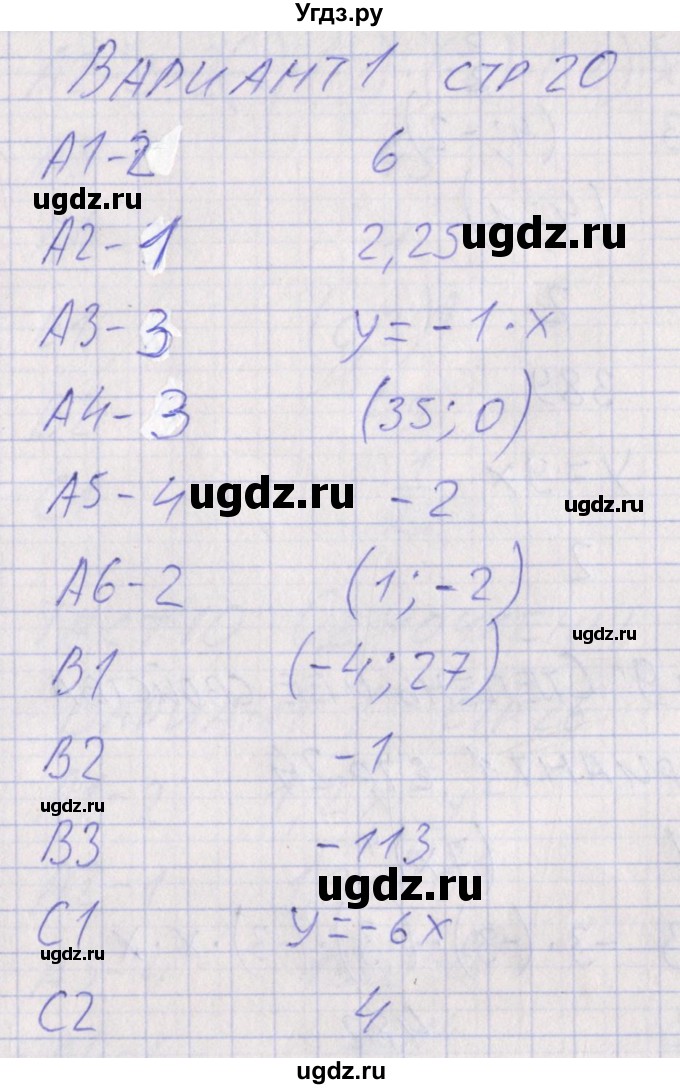 Угдз.ру
ВАРИАНТ 1 СТР 20
А1-2 6
ugdz.ru
А2-1 2,25 ugdz.ru
А3-3 y=-1·x
А4-3 (35;0)
А5-4 ugdz.ru -2 ugdz.ru
А6-2 (1;-2)
ugdz.ru ugdz.ru
В1 (-4;27)
В2 -1
ugdz.ru
В3 -113
ugdz.ru
С1 y=-6x
ugdz.ru
С2 4
ugdz.ru ugdz.ru